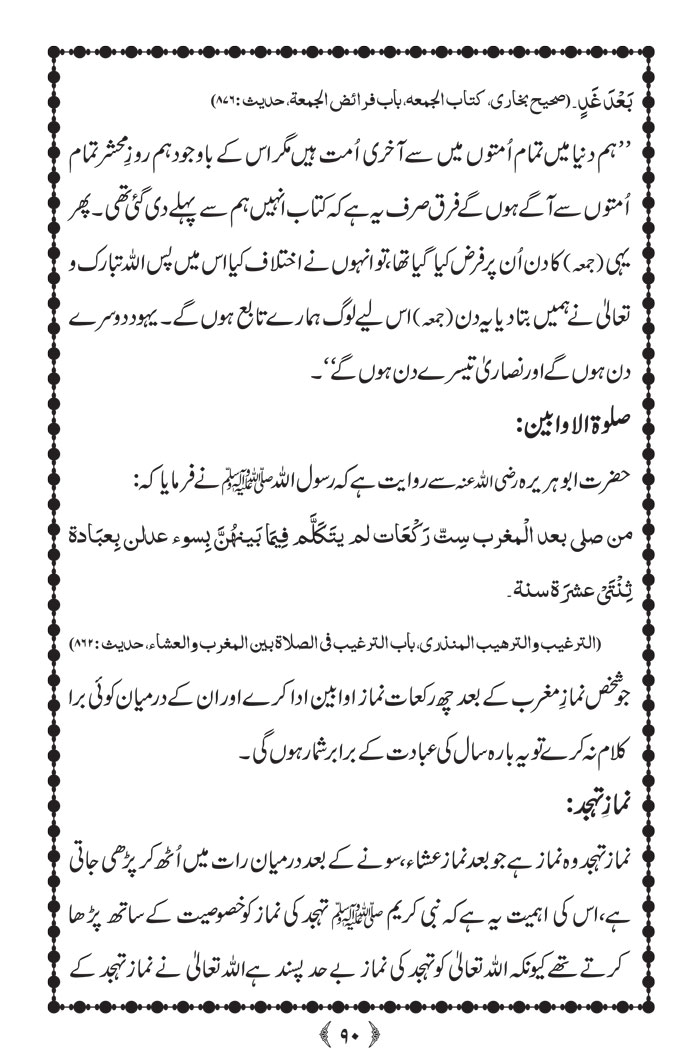 بَعْدَ غَدٍ۔ (صحیح بخاری، کتاب الجمعہ، باب فرائض الجمعة، حدیث: ۸۷۶)
’’ہم دنیا میں تمام اُمتوں میں سے آخری اُمت ہیں مگر اس کے باوجود ہم روزِ محشر تمام
اُمتوں سے آگے ہوں گے فرق صرف یہ ہے کہ کتاب انہیں ہم سے پہلے دی گئی تھی۔ پھر
یہی (جمعہ) کا دن اُن پر فرض کیا گیا تھا، تو انہوں نے اختلاف کیا اس میں پس اللہ تبارک و
تعالیٰ نے ہمیں بتا دیا یہ دن (جمعہ) اس لیے لوگ ہمارے تابع ہوں گے۔ یہود دوسرے
دن ہوں گے اور نصاریٰ تیسرے دن ہوں گے‘‘۔
صلوۃ الاوابین:
حضرت ابو ہریرہ رضی اللہ عنہ سے روایت ہے کہ رسول اللہ ﷺ نے فرمایا کہ:
من صلی بعد الْمغرب سِتّ رَکْعَات لم یتَکَلَّم فِیمَا بَینهُنَّ بِسوء عدلن بِعبَادة
ثِنْتَیْ عشرَة سنة۔
(الترغیب والترهیب المنذری، باب الترغیب فی الصلاة بین المغرب والعشاء، حدیث: ۸۶۲)
جو شخص نمازِ مغرب کے بعد چھ رکعات نماز اوابین ادا کرے اور ان کے درمیان کوئی برا
کلام نہ کرے تو یہ بارہ سال کی عبادت کے برابر شمار ہوں گی۔
نمازِ تہجد:
نماز تہجد وہ نماز ہے جو بعد نماز عشاء، سونے کے بعد درمیان رات میں اُٹھ کر پڑھی جاتی
ہے، اس کی اہمیت یہ ہے کہ نبی کریم ﷺ تہجد کی نماز کو خصوصیت کے ساتھ پڑھا
کرتے تھے کیونکہ اللہ تعالیٰ کو تہجد کی نماز بے حد پسند ہے اللہ تعالیٰ نے نماز تہجد کے
﴿۹۰﴾